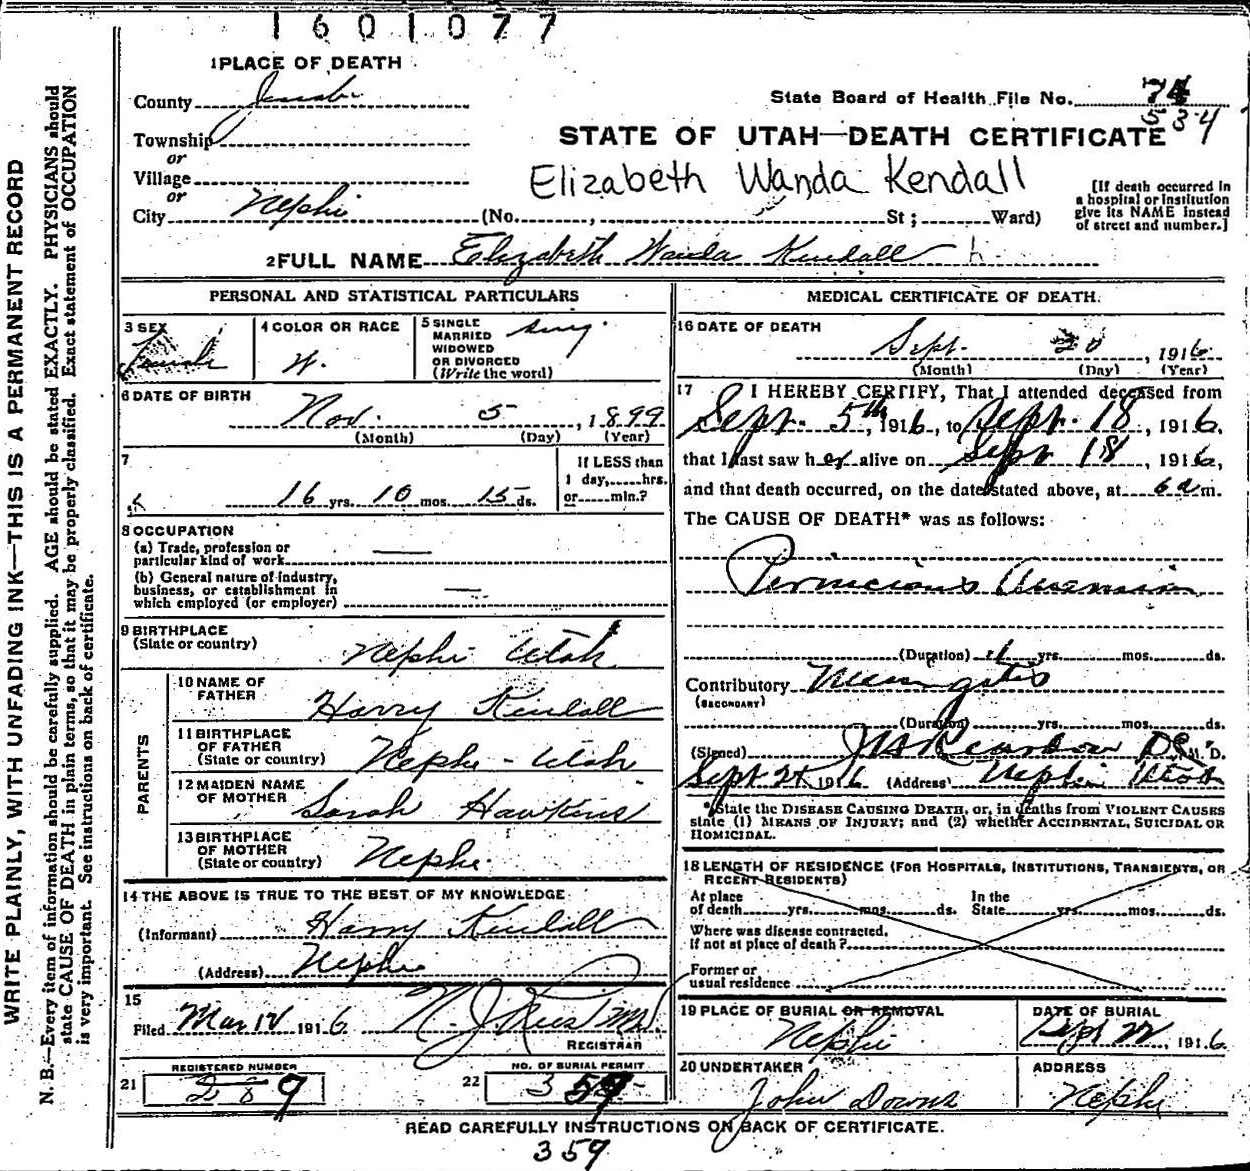 1601077
1 PLACE OF DEATH
County Juab
Township
or
Village
or
City Nephi (No. , St ; Ward)
State Board of Health File No. 74
534
STATE OF UTAH—DEATH CERTIFICATE
Elizabeth Wanda Kendall
[If death occurred in
a hospital or institution
give its NAME instead
of street and number.]
2 FULL NAME Elizabeth Wanda Kendall
PERSONAL AND STATISTICAL PARTICULARS
3 SEX
Female
4 COLOR OR RACE
W.
5 SINGLE
MARRIED
WIDOWED
OR DIVORCED
(Write the word)
sing.
6 DATE OF BIRTH
Nov. 5, 1899
(Month) (Day) (Year)
7
16 yrs. 10 mos. 15 ds.
If LESS than
1 day, hrs.
or min.?
8 OCCUPATION
(a) Trade, profession or
particular kind of work —
(b) General nature of industry,
business, or establishment in
which employed (or employer) —
9 BIRTHPLACE
(State or country)
Nephi Utah
PARENTS
10 NAME OF
FATHER
Harry Kendall
11 BIRTHPLACE
OF FATHER
(State or country)
Nephi - Utah
12 MAIDEN NAME
OF MOTHER
Sarah Hawkins
13 BIRTHPLACE
OF MOTHER
(State or country)
Nephi.
14 THE ABOVE IS TRUE TO THE BEST OF MY KNOWLEDGE
(Informant) Harry Kendall
(Address) Nephi
15
Filed 1916
REGISTRAR
21
REGISTERED NUMBER
289
22
NO. OF BURIAL PERMIT
359
MEDICAL CERTIFICATE OF DEATH.
16 DATE OF DEATH
Sept. 20, 1916
(Month) (Day) (Year)
17 I HEREBY CERTIFY, That I attended deceased from
Sept. 5th, 1916, to Sept. 18, 1916,
that I last saw her alive on Sept 18, 1916,
and that death occurred, on the date stated above, at 6 a m.
The CAUSE OF DEATH* was as follows:
Pernicious Anemia
(Duration) 1 yrs. mos. ds.
Contributory Meningitis
(SECONDARY)
(Duration) yrs. mos. ds.
(Signed) M. D.
Sept 21 1916 (Address) Nephi Utah
*State the DISEASE CAUSING DEATH, or, in deaths from VIOLENT CAUSES
state (1) MEANS OF INJURY; and (2) whether ACCIDENTAL, SUICIDAL OR
HOMICIDAL.
18 LENGTH OF RESIDENCE (FOR HOSPITALS, INSTITUTIONS, TRANSIENTS, OR
RECENT RESIDENTS)
At place
of death yrs. mos. ds.
In the
State yrs. mos. ds.
Where was disease contracted,
if not at place of death?
Former or
usual residence
19 PLACE OF BURIAL OR REMOVAL
Nephi
DATE OF BURIAL
Sept 22, 1916
20 UNDERTAKER
John Downs
ADDRESS
Nephi
READ CAREFULLY INSTRUCTIONS ON BACK OF CERTIFICATE.
359
WRITE PLAINLY, WITH UNFADING INK—THIS IS A PERMANENT RECORD
N. B.—Every item of information should be carefully supplied. AGE should be stated EXACTLY. PHYSICIANS should
state CAUSE OF DEATH in plain terms, so that it may be properly classified. Exact statement of OCCUPATION
is very important. See instructions on back of certificate.